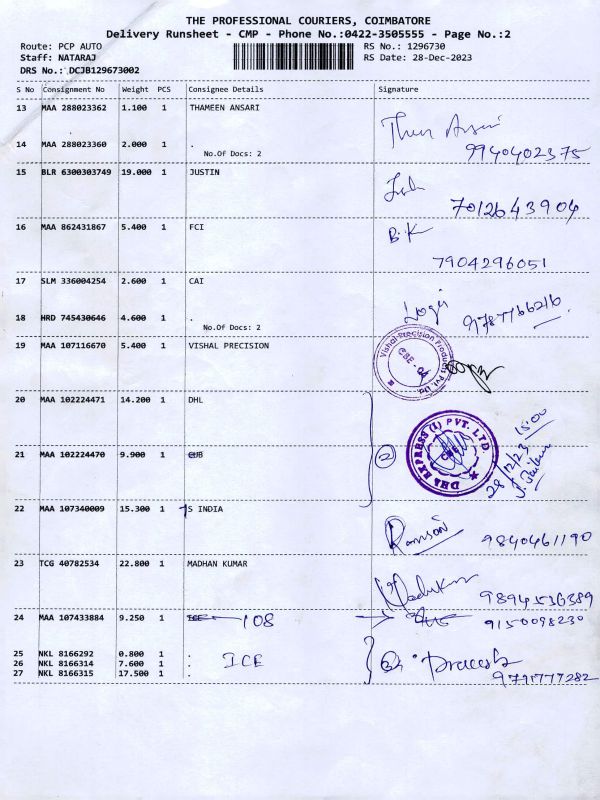 THE PROFESSIONAL COURIERS, COIMBATORE
Delivery Runsheet - CMP - Phone No.:0422-3505555 - Page No.:2
Route: PCP AUTO
Staff: NATARAJ
DRS No.: DCJB129673002
RS No.: 1296730
RS Date: 28-Dec-2023
S No Consignment No Weight PCS Consignee Details Signature
13 MAA 288023362 1.100 1 THAMEEN ANSARI
14 MAA 288023360 2.000 1 .
No.Of Docs: 2
9940402375
15 BLR 6300303749 19.000 1 JUSTIN
7012643904
16 MAA 862431867 5.400 1 FCI
7904296051
17 SLM 336004254 2.600 1 CAI
18 HRD 745430646 4.600 1 .
No.Of Docs: 2
Logi
9787766216
19 MAA 107116670 5.400 1 VISHAL PRECISION
Vishal Precision Products Pvt. Ltd.
CBE -
20 MAA 102224471 14.200 1 DHL
21 MAA 102224470 9.900 1 CUB
2
DHL EXPRESS (I) PVT. LTD.
28/12/23 15:00
22 MAA 107340009 15.300 1 TS INDIA
Ramson 9840461190
23 TCG 40782534 22.800 1 MADHAN KUMAR
9894536389
24 MAA 107433884 9.250 1 ICE 108
9150098230
25 NKL 8166292 0.800 1 .
26 NKL 8166314 7.600 1 . ICE
27 NKL 8166315 17.500 1 .
9791777282